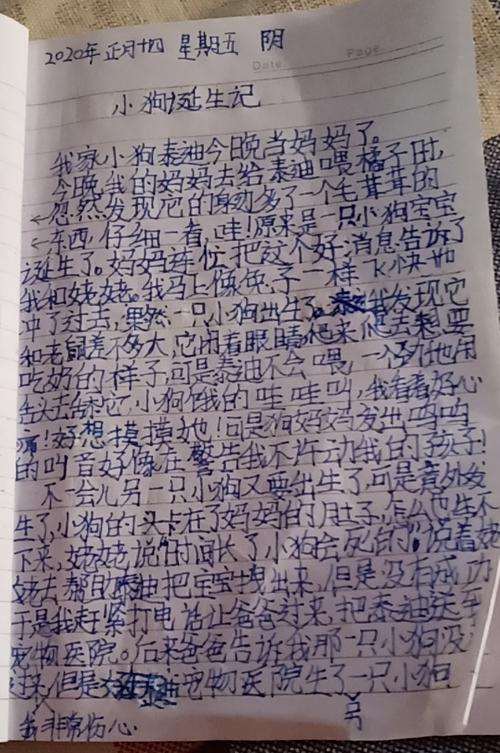 2020年 正月十四 星期五 阴
Date Page
小狗诞生记
我家小狗泰迪今晚当妈妈了。
今晚,我的妈妈去给泰迪喂橘子时,
忽然发现它的身边多了一个毛茸茸的
东西,仔细一看,哇!原来是一只小狗宝宝
诞生了。妈妈连忙把这个好消息告诉了
我和姥姥。我马上像兔子一样飞快地
冲了过去,果然一只小狗出生了。我发现它
和老鼠差不多大,它闭着眼睛爬来爬去想要
吃奶的样子,可是泰迪不会喂,一个劲地用
去它,小狗饿的哇哇叫,我看着好心
疼!好想摸摸她!可是狗妈妈发出呜呜
的叫音好像在警告我不许动我的孩子!
不一会儿另一只小狗又要出生了,可是意外发
生了,小狗的头卡在了妈妈的肚子,怎么也生不
下来,姥姥说“时间长了小狗会死的”。说着姥
姥去帮助泰迪把宝宝拽出来,但是没有成功
于是我赶紧打电话让爸爸过来,把泰迪送
宠物医院。后来爸爸告诉我那一只小狗没
过来,但是宠物医院生了一只小狗
我非常伤心。 另